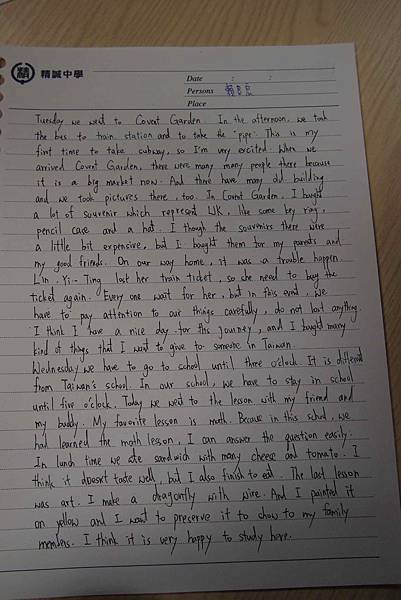 精誠中學
Date : :
Persons
Place
Tuesday we went to Covent Garden. In the afternoon, we took
the bus to train station and to take the "pipe". This is my
first time to take subway, so I'm very excited. When we
arrived Covent Garden, there were many many people there because
it is a big market now. And there have many old building
and we took pictures there, too. In Covent Garden, I bought
a lot of souvenir which represent UK, like some key ring,
pencil case and a hat. I though the souvenirs there were
a little bit expensive, but I bought them for my parents and
my good friends. On our way home, it was a trouble happen.
Lin, Yi-Ting lost her train ticket, so she need to buy the
ticket again. Every one wait for her, but in this event, we
have to pay attention to our things carefully, do not lost anything.
I think I have a nice day for this journey, and I bought many
kind of things that I want to give to someone in Taiwan.
Wednesday we have to go to school until three o'clock. It is different
from Taiwan's school. In our school, we have to stay in school
until five o'clock. Today we went to the lesson with my friend and
my buddy. My favorite lesson is math. Because in this school, we
had learned the math lesson, I can answer the question easily.
In lunch time we ate sandwich with many cheese and tomato. I
think it doesn't taste well, but I also finish to eat. The last lesson
was art. I make a dragonfly with wire. And I painted it
on yellow and I want to preserve it to show to my family
members. I think it is very happy to study here.